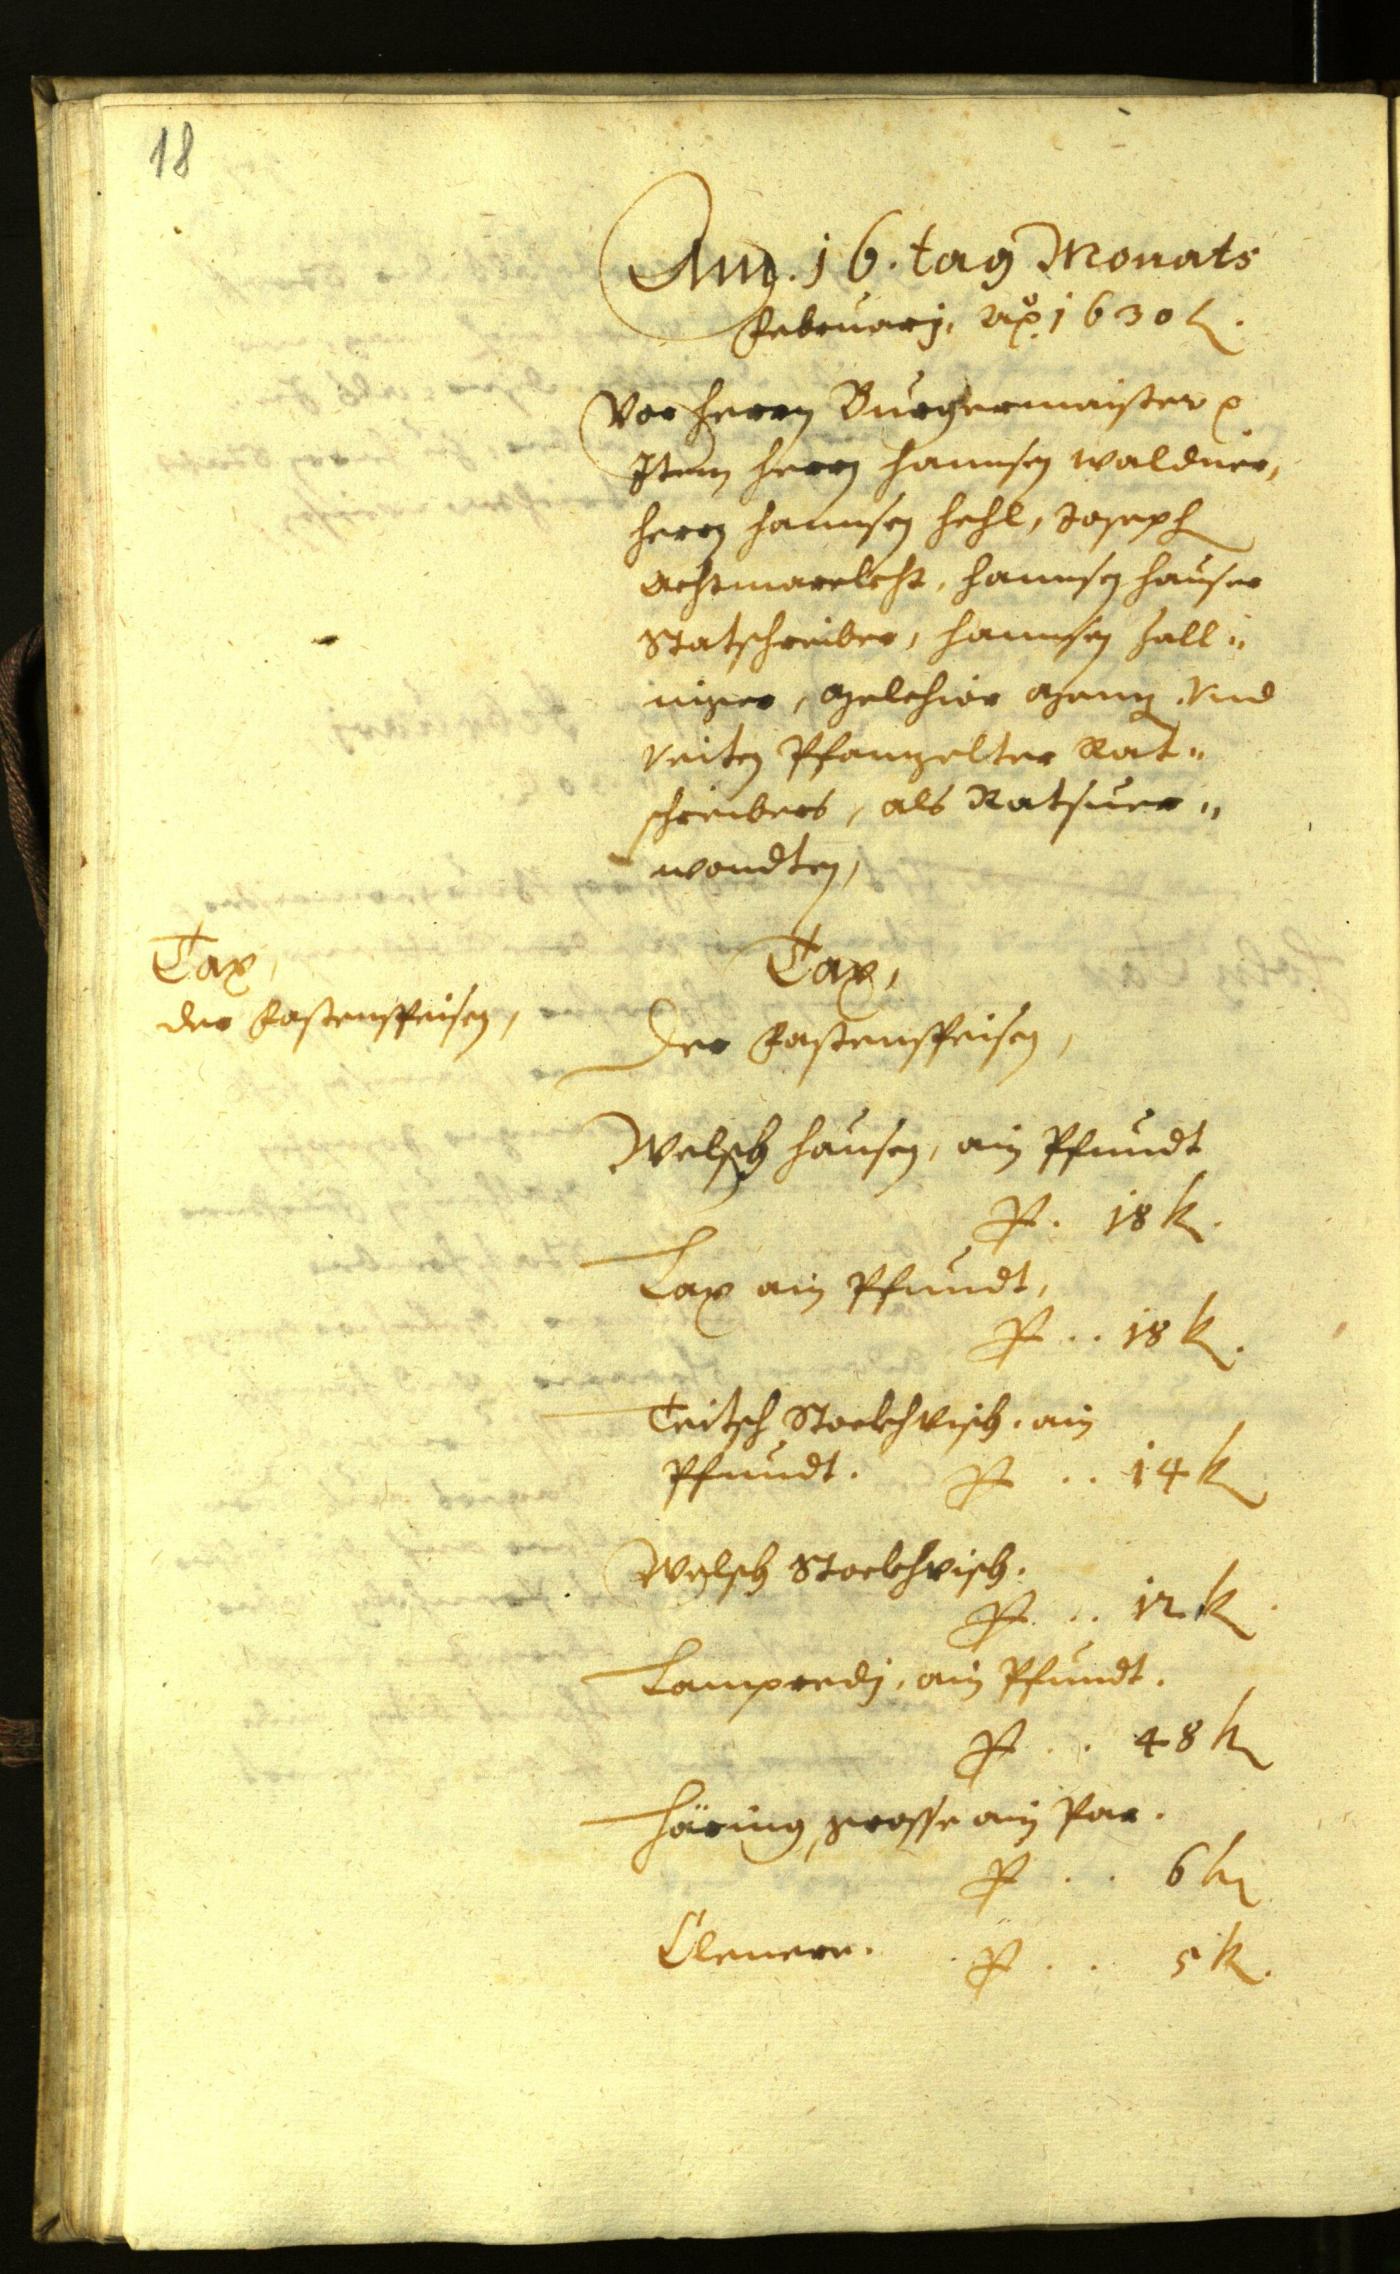 18
Am. 16. tag Monats
Februarj, Aō. 1630 ꝛ.
Vor Herrn Burgermaister ꝛ
Item Herrn Hannsen Waldner,
Herrn Hannsen Hehl, Joseph
Achtmarckht, Hannsen Hauser
Statschreiber, Hannsen Zall"
inger, Melchior Menz Vnd
Veiten Pfangelter Rat"
schreibers, als Ratsuer"
wondten,
Tax,
der Fastenspeisen,
Tax,
Der Fastenspeisen,
Welsch Hausen, ain Pfundt
P. 18 k.
Lax ain Pfundt,
P .. 18 k.
Teitsch Stockhvisch. ain
Pfundt. P .. 14 k
Welsch Stockhvisch.
P .. 12 k.
Lampredj, ain Pfundt.
P .. 48 k
Häring, grosse ain Par.
P .. 6 k
Clenere. P .. 5 k.